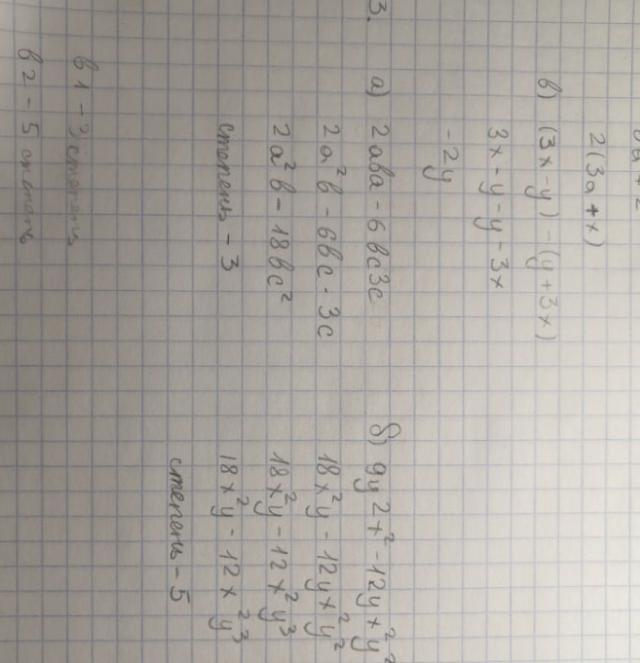 2(3a+x)
в) (3x-y)-(y+3x)
3x-y-y-3x
-2y
3.
а) 2aba-6bc3c
2a²b-6bc·3c
2a²b-18bc²
степень-3
б) 9y2x²-12yx²y²
18x²y-12yx²y²
18x²y-12x²y³
18x²y-12x²y³
степень-5
в1-3 степень
в2-5 степень